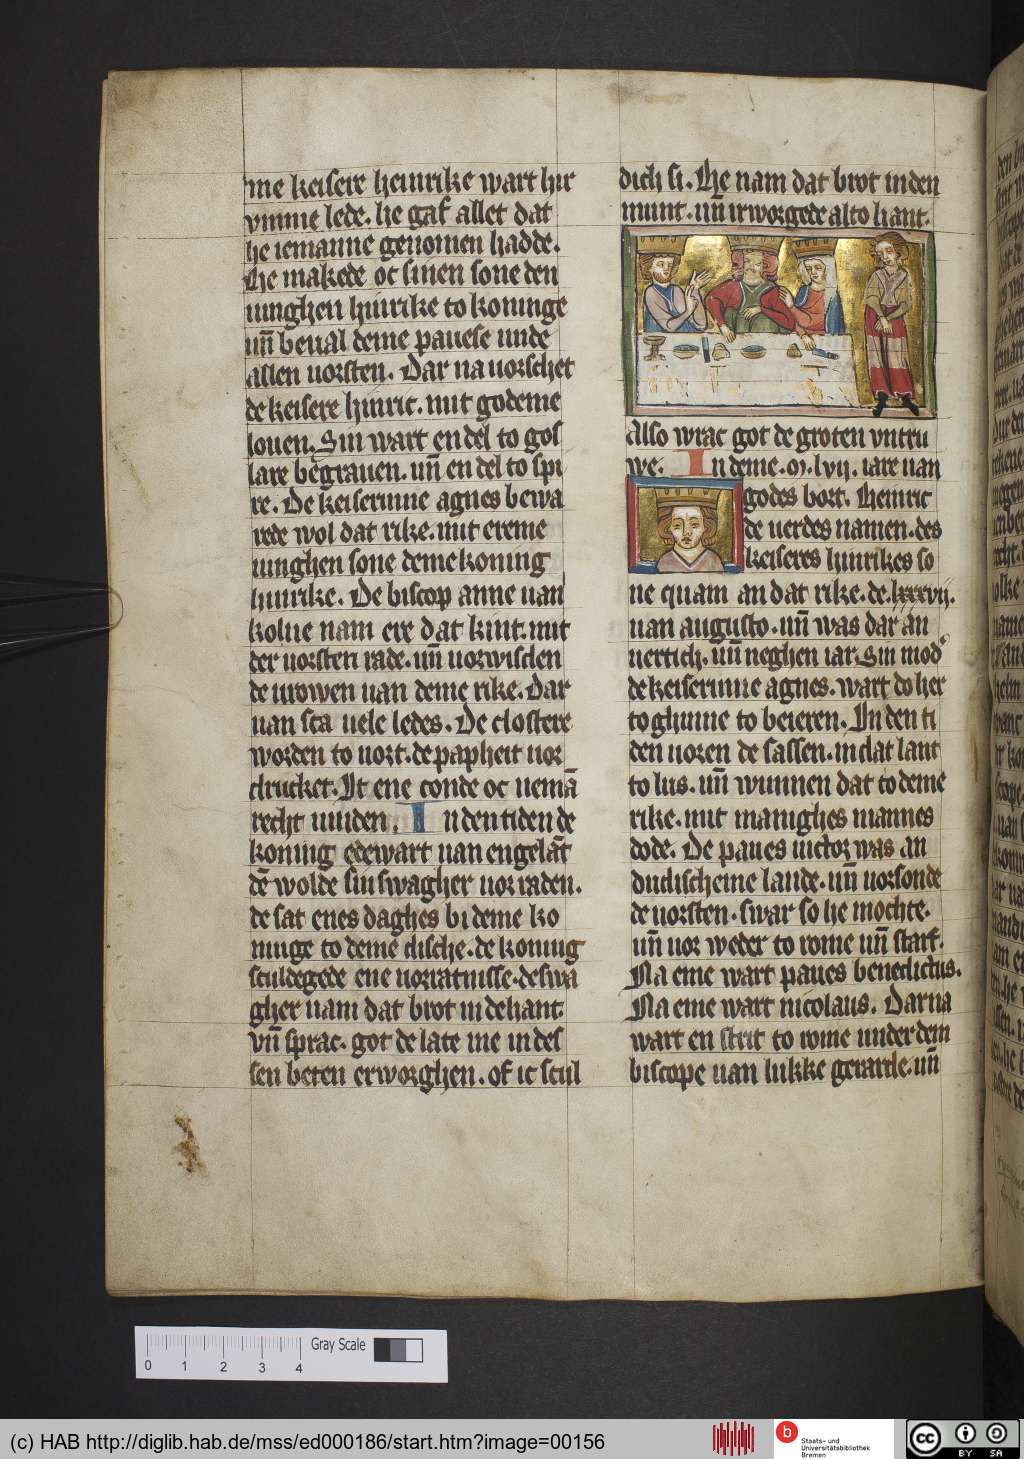 me keisere heinrike wart hir
vmme lede. he gaf allet dat
he iemanne genomen hadde.
He makede oc sinen sone den
iunghen hinrike to koninge
un̄ beual deme pauese unde
allen uorsten. Dar na uorschet
de keisere hinric. mit godeme
louen. Sin wart en del to gos
lare begrauen. un̄ en del to spi
re. De keiserinne agnes bewa
rede wol dat rike. mit ereme
iunghen sone deme koning
hinrike. De biscop anne uan
kolne nam ere dat kint. mit
der uorsten rade. un̄ uorwisden
de urowen uan deme rike. Dar
uan sca uele ledes. De clostere
worden to uort. de papheit uor
drucket. It ene conde oc nemā
recht uinden. In den tiden de
koning edewart uan engelāt
dē wolde sin swagher uor raden.
de sat enes daghes bi deme ko
ninge to deme dische. de koning
sculdegede ene uorratnisse. de swa
gher nam dat brot in de hant.
vn̄ sprac. got de late me in des
sen beten erworghen. of ic scul
dich si. He nam dat brot in den
munt. un̄ irworgede alto hant.
Also wrac got de groten vntru
we. In deme .m. lvij. iare uan
godes bort. Heinric
de uerdes namen. des
keiseres hinrikes so
ne quam an dat rike. de. lxxxvij.
uan augusto. un̄ was dar an
uertich. un̄ neghen iar. Sin mod
de keiserinne agnes. wart do her
toghinne to beieren. In den ti
den uoren de sassen. in dat lant
to lus. un̄ wunnen dat to deme
rike. mit manighes mannes
dode. De paues uictor was an
dudischeme lande. un̄ uorsonde
de uorsten. swar so he mochte.
un̄ uor weder to rome un̄ starf.
Na eme wart paues benedictus.
Na eme wart nicolaus. Dar na
wart en strit to rome under dem
biscope uan lukke gerarde. un̄
0 1 2 3 4 Gray Scale
(c) HAB http://diglib.hab.de/mss/ed000186/start.htm?image=00156
b Staats- und
Universitätsbibliothek
Bremen
cc BY SA